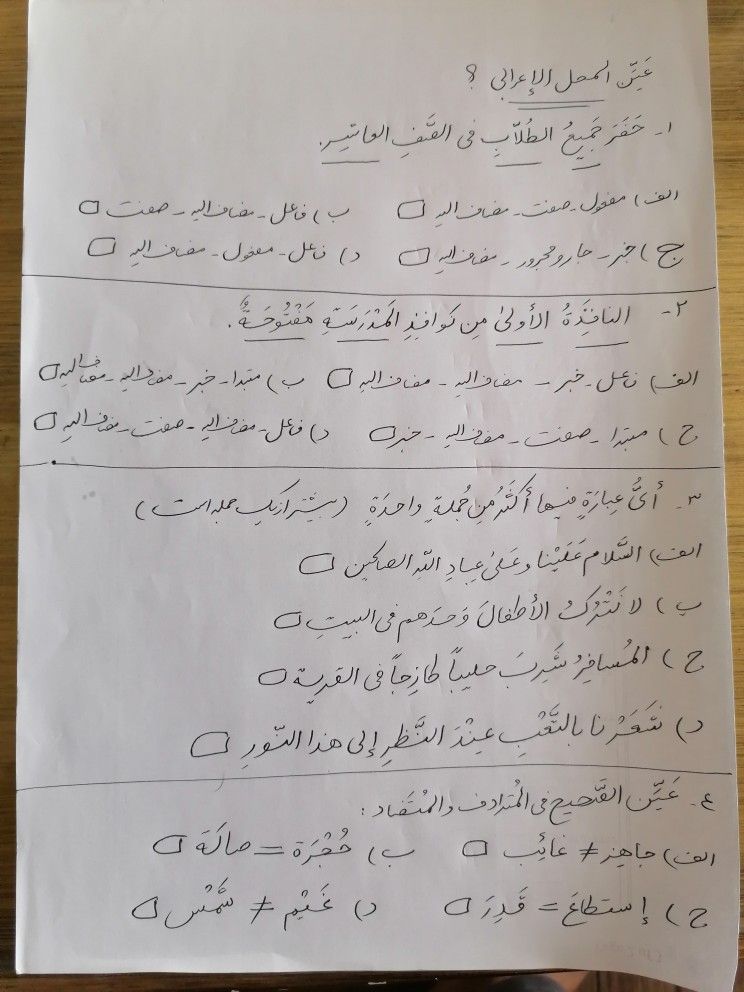 عَیِّن المحل الإعرابی ؟
۱- حَضَرَ جَمیعُ الطُلّابِ فی الصَّفِ العاشِرِ.
الف) مفعول - صفت - مضاف الیه ب) فاعل - مضاف الیه - صفت
ج) خبر - جار و مجرور - مضاف الیه د) فاعل - مفعول - مضاف الیه
۲- النافِذَةُ الأولیٰ مِن نَوافِذِ المَدْرَسَةِ مَفْتُوحَةٌ.
الف) فاعل - خبر - مضاف الیه - مضاف الیه ب) مبتدا - خبر - مضاف الیه - مضاف الیه
ج) مبتدا - صفت - مضاف الیه - خبر د) فاعل - مضاف الیه - صفت - مضاف الیه
۳- أیُّ عِبارَةٍ فیها أکثَرُ مِن جُملةٍ واحدَةٍ (بیشتر از یک جمله است)
الف) السَّلام عَلَیْنا و عَلیٰ عِبادِ اللّه الصالحین
ب) لا نَتْرُکُ الأطفالَ وَحدَهم فی البیتِ
ج) المُسافِرُ شَرِبَ حلیباً طازِجاً فی القریة
د) شَعَرْنا بالتَّعْبِ عِنْدَ النَّظَرِ إلی هذا النّورِ
٤- عَیِّن الصَّحیح فی المُتَرادف و المُتَضاد :
الف) جاهِز ≠ غائِب ب) حُجْرَة = صالَة
ج) إستطاعَ = قَدِرَ د) غَیْم ≠ شَمْس